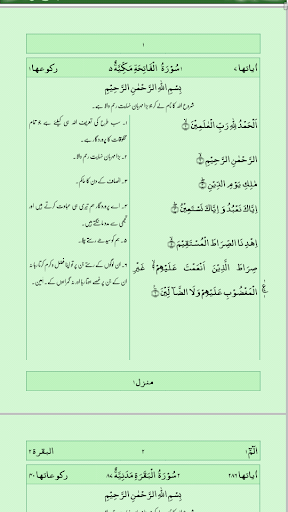 ١
اٰیاتها ٧ ١ سُوْرَةُ الْفَاتِحَةِ مَكِّيَّةٌ ٥ رکوعها ١
بِسْمِ اللّٰهِ الرَّحْمٰنِ الرَّحِيْمِ
شروع اللہ کا نام لے کر جو بڑا مہربان نہایت رحم والا ہے۔
اَلْحَمْدُ لِلّٰهِ رَبِّ الْعٰلَمِيْنَ ۝١
۱۔ سب طرح کی تعریف اللہ ہی کیلئے ہے جو تمام
مخلوقات کا پروردگار ہے۔
الرَّحْمٰنِ الرَّحِيْمِ ۝٢
۲۔ بڑا مہربان نہایت رحم والا۔
مٰلِكِ يَوْمِ الدِّيْنِ ۝٣
۳۔ انصاف کے دن کا حاکم۔
اِيَّاكَ نَعْبُدُ وَ اِيَّاكَ نَسْتَعِيْنُ ۝٤
۴۔ اے پروردگار ہم تیری ہی عبادت کرتے ہیں اور
تجھی سے مدد مانگتے ہیں۔
اِهْدِنَا الصِّرَاطَ الْمُسْتَقِيْمَ ۝٥
۵۔ ہم کو سیدھے رستے چلا۔
صِرَاطَ الَّذِيْنَ اَنْعَمْتَ عَلَيْهِمْ ۝٦ غَيْرِ
الْمَغْضُوْبِ عَلَيْهِمْ وَلَا الضَّآلِّيْنَ ۝٧
۶۔ ان لوگوں کے رستے جن پر تو اپنا فضل و کرم کرتا رہا نہ
ان کے جن پر غصے ہوتا رہا اور نہ گمراہوں کے۔ آمین۔
منزل ١
الٓمّٓ ١ ٢ البقرة ٢
اٰیاتها ٢٨٦ ٢ سُوْرَةُ الْبَقَرَةِ مَدَنِيَّةٌ ٨٧ رکوعاتها ٤٠
بِسْمِ اللّٰهِ الرَّحْمٰنِ الرَّحِيْمِ